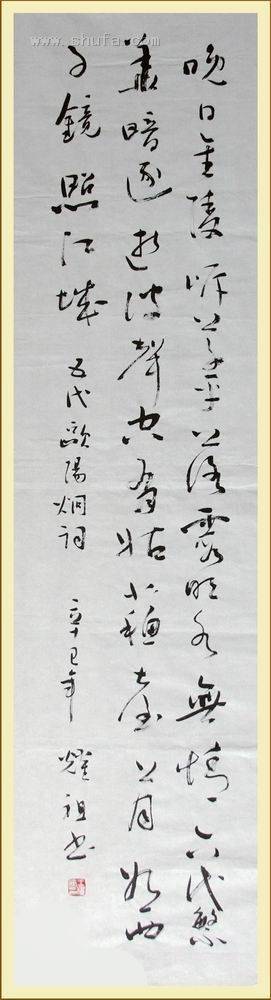 www.shufa.com
晚日金陵岸草平落霞明水無情六代繁
華暗逐逝波聲空有姑蘇臺上月如西
子鏡照江城 五代歐陽炯詞 辛巳年 耀祖书